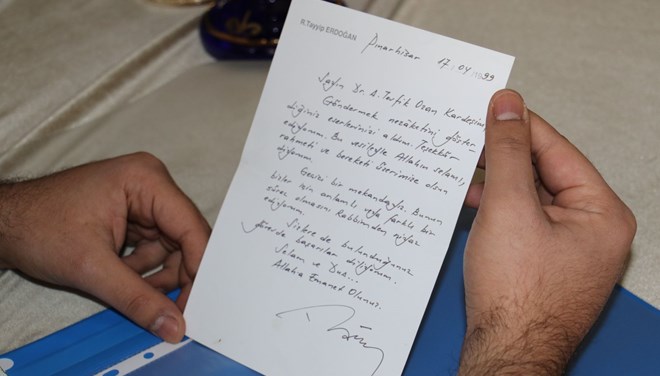 R.Tayyip ERDOĞAN
Pınarhisar 17/04/1999
Sayın Dr. A. Tevfik Ozan Kardeşim,
Göndermek nezaketini göster
diğiniz eserlerinizi aldım. Teşekkür
ediyorum. Bu vesileyle Allahın selamı,
rahmeti ve bereketi üzerimize olsun
diyorum.
Geçici bir mekandayız. Bunun
bizler için anlamlı veya farklı bir
süreç olmasını Rabbimden niyaz
ediyorum.
Sizlere de bulunduğunuz
görevde başarılar diliyorum.
Selam ve Dua...
Allaha Emanet Olunuz.